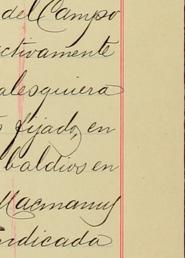 del Campo
ctivamente
alesquiera
fijado, en
baldios en
Macmanus
indicada